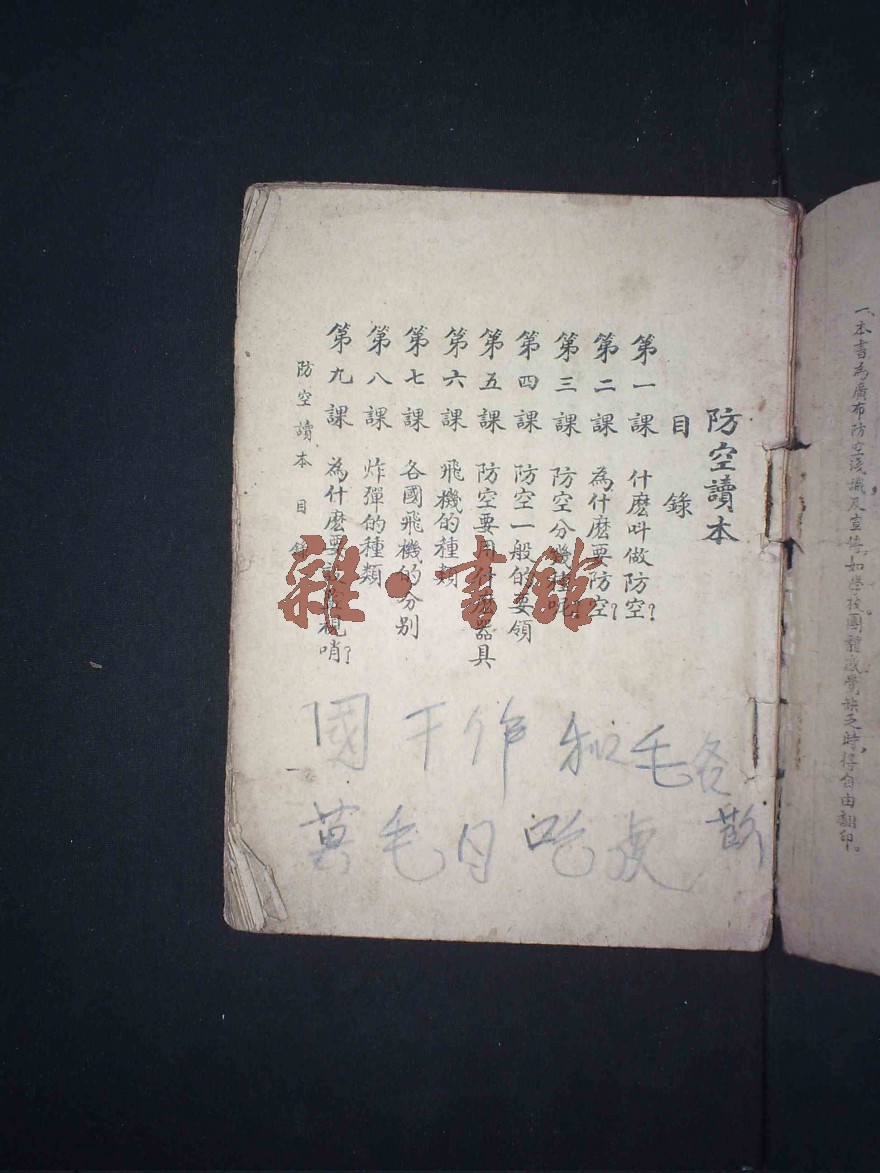 一、本書為廣布防空淺識及宣傳，如學校團體感覺缺乏時，得自由翻印。
防空讀本
目錄
第一課 什麽叫做防空？
第二課 為什麽要防空？
第三課 防空分幾種呢？
第四課 防空一般的要領
第五課 防空要用什麽器具
第六課 飛機的種類
第七課 各國飛機的分别
第八課 炸彈的種類
第九課 為什麽要設監視哨？
防空讀本 目錄
雜·書館
國干作和毛各
毛日